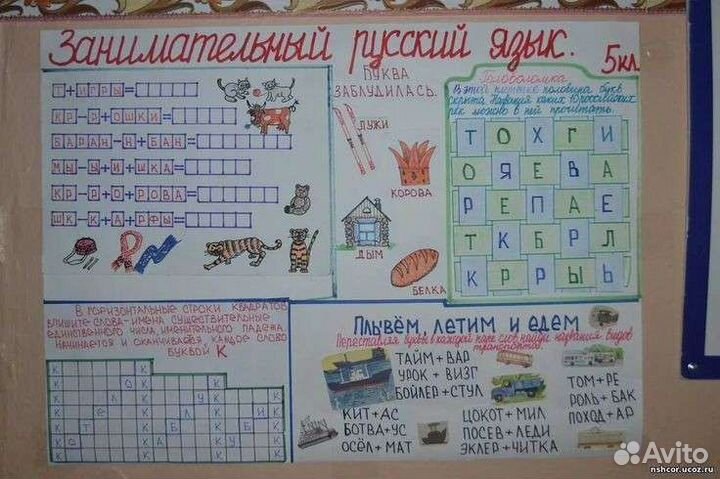 Занимательный русский язык.
5кл.
Т+ИГРЫ=
КР-Р+ОШКИ=
БАРАН-Н+БАН=
МЫ-Ы+И+ШКА=
КР-Р+О+РОВА=
ШК-К+А+РФЫ=
БУКВА
ЗАБЛУДИЛАСЬ.
ЛУЖИ
КОРОВА
ДЫМ
БЕЛКА
Головоломка
В этой плетёнке половина букв
скрыта. Названия каких российских
рек можно в ней прочитать.
Т О Х Г И
О Я Е В А
Р Е П А Е
Т К Б Р Л
К Р Р Ы Ь
В ГОРИЗОНТАЛЬНЫЕ СТРОКИ КВАДРАТОВ
ВПИШИТЕ СЛОВА-ИМЕНА СУЩЕСТВИТЕЛЬНЫЕ
ЕДИНСТВЕННОГО ЧИСЛА, ИМЕНИТЕЛЬНОГО ПАДЕЖА.
НАЧИНАЕТСЯ И ОКАНЧИВАЕТСЯ КАЖДОЕ СЛОВО
БУКВОЙ К
Плывём, летим и едем
Переставляя буквы в каждой паре слов найди названия видов
транспорта.
ТАЙМ+ВАР
УРОК+ВИЗГ
БОЙЛЕР+СТУЛ
КИТ+АС
БОТВА+УС
ОСЁЛ+МАТ
ЦОКОТ+МИЛ
ПОСЕВ+ЛЕДИ
ЭКЛЕР+ЧИТКА
ТОМ+РЕ
РОЛЬ+БАК
ПОХОД+АР
Avito
nshcor.ucoz.ru